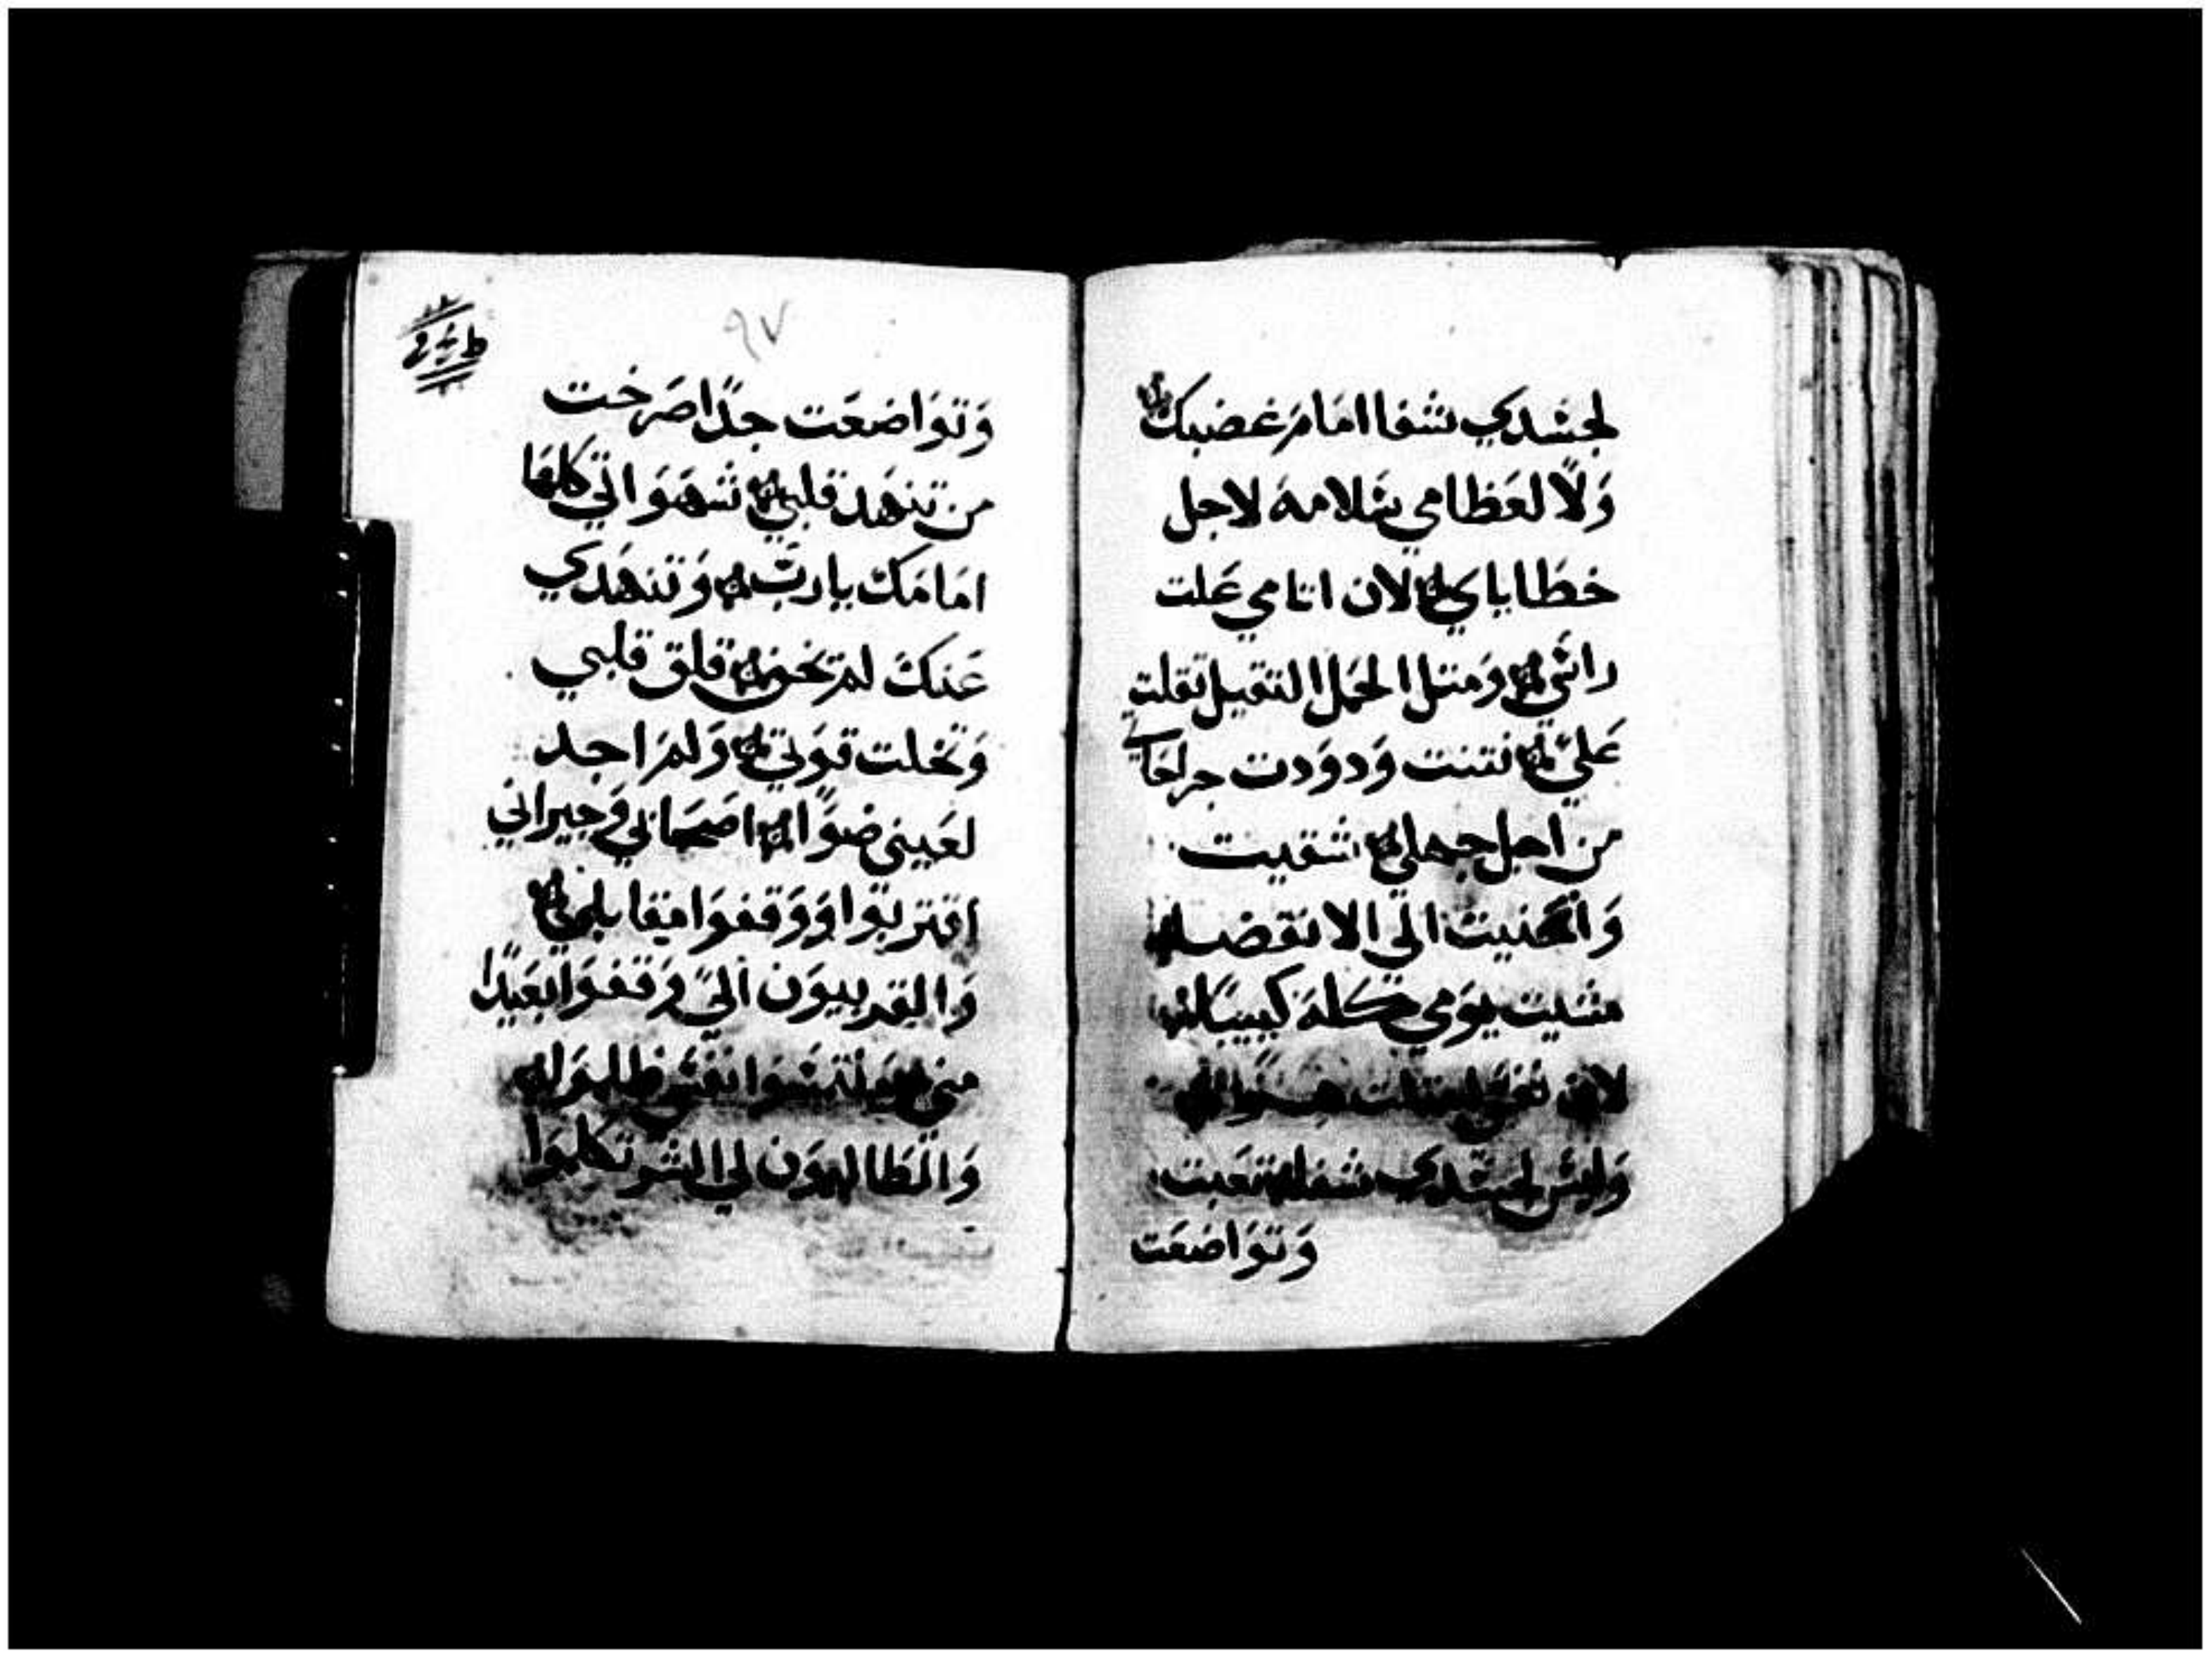 لجسدي شفا امام غضبك
ولا لعظامي سلامه لاجل
خطاياي لان اتامي علت
راسي ومتل الحمل التقيل تقلت
علي نتنت ودودت جراحاتي
من اجل جهلي شقيت
وانحنيت الي الانقضا
مشيت يومي كله كييبا
لان
وليس لجسدي شفا تعبت
وتواضعت
٩٧
وتواضعت جدا صرخت
من تنهد قلبي شهواتي كلها
امامك يارب وتنهدي
عنك لم تخفى قلق قلبي
وتخلت قوتي ولم اجد
لعيني ضوا اصحابي وجيراني
اقتربوا ووقفوا مقابلي
والقريبون الي وقفوا بعيدا
مني
والطالبون لي الشر تكلموا